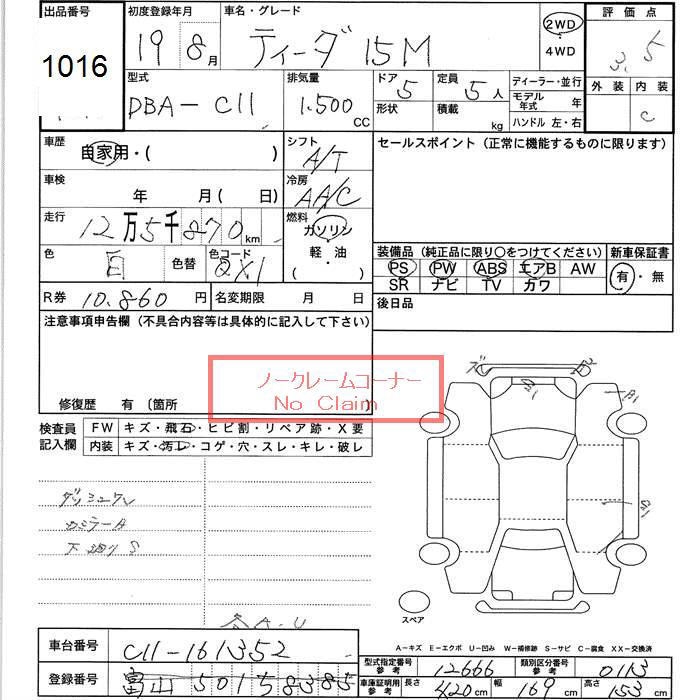 出品番号 初度登録年月 車名・グレード 2WD 評価点
1016 19 8月 ティーダ 15M 4WD 3.5
型式 排気量 ドア 定員 ディーラー・並行 外装 内装
DBA-C11 1.500 CC 5 形状 5人 積載 kg モデル年式 年 ハンドル 左・右 C
車歴 自家用・( ) シフト A/T セールスポイント (正常に機能するものに限ります)
車検 年 月 ( 日) 冷房 AA/C
走行 12万5千870 km 燃料 ガソリン
色 白 色替 色コード QX1 軽・油 装備品 (純正品に限り○をつけてください) 新車保証書
PS PW ABS エアB AW 有・無
SR ナビ TV カワ
R券 10.860 円 名変期限 月 日 後日品
注意事項申告欄 (不具合内容等は具体的に記入して下さい)
ノークレームコーナー
No Claim
修復歴 有 〔箇所
検査員 FW キズ・飛石・ヒビ割・リペア跡・X要
記入欄 内装 キズ・汚コレ・コゲ・穴・スレ・キレ・破レ
A1
ダッシュワレ
下廻り S
スペア
A.U
A-キズ E-エクボ U-凹み W-補修跡 S-サビ C-腐食 XX-交換済
車台番号 C11-161352 型式指定番号 参考 12666 類別区分番号 参考 0113
登録番号 富山 501 5 8385 車庫証明用 参考 長さ 420 cm 幅 169 cm 高さ 153 cm